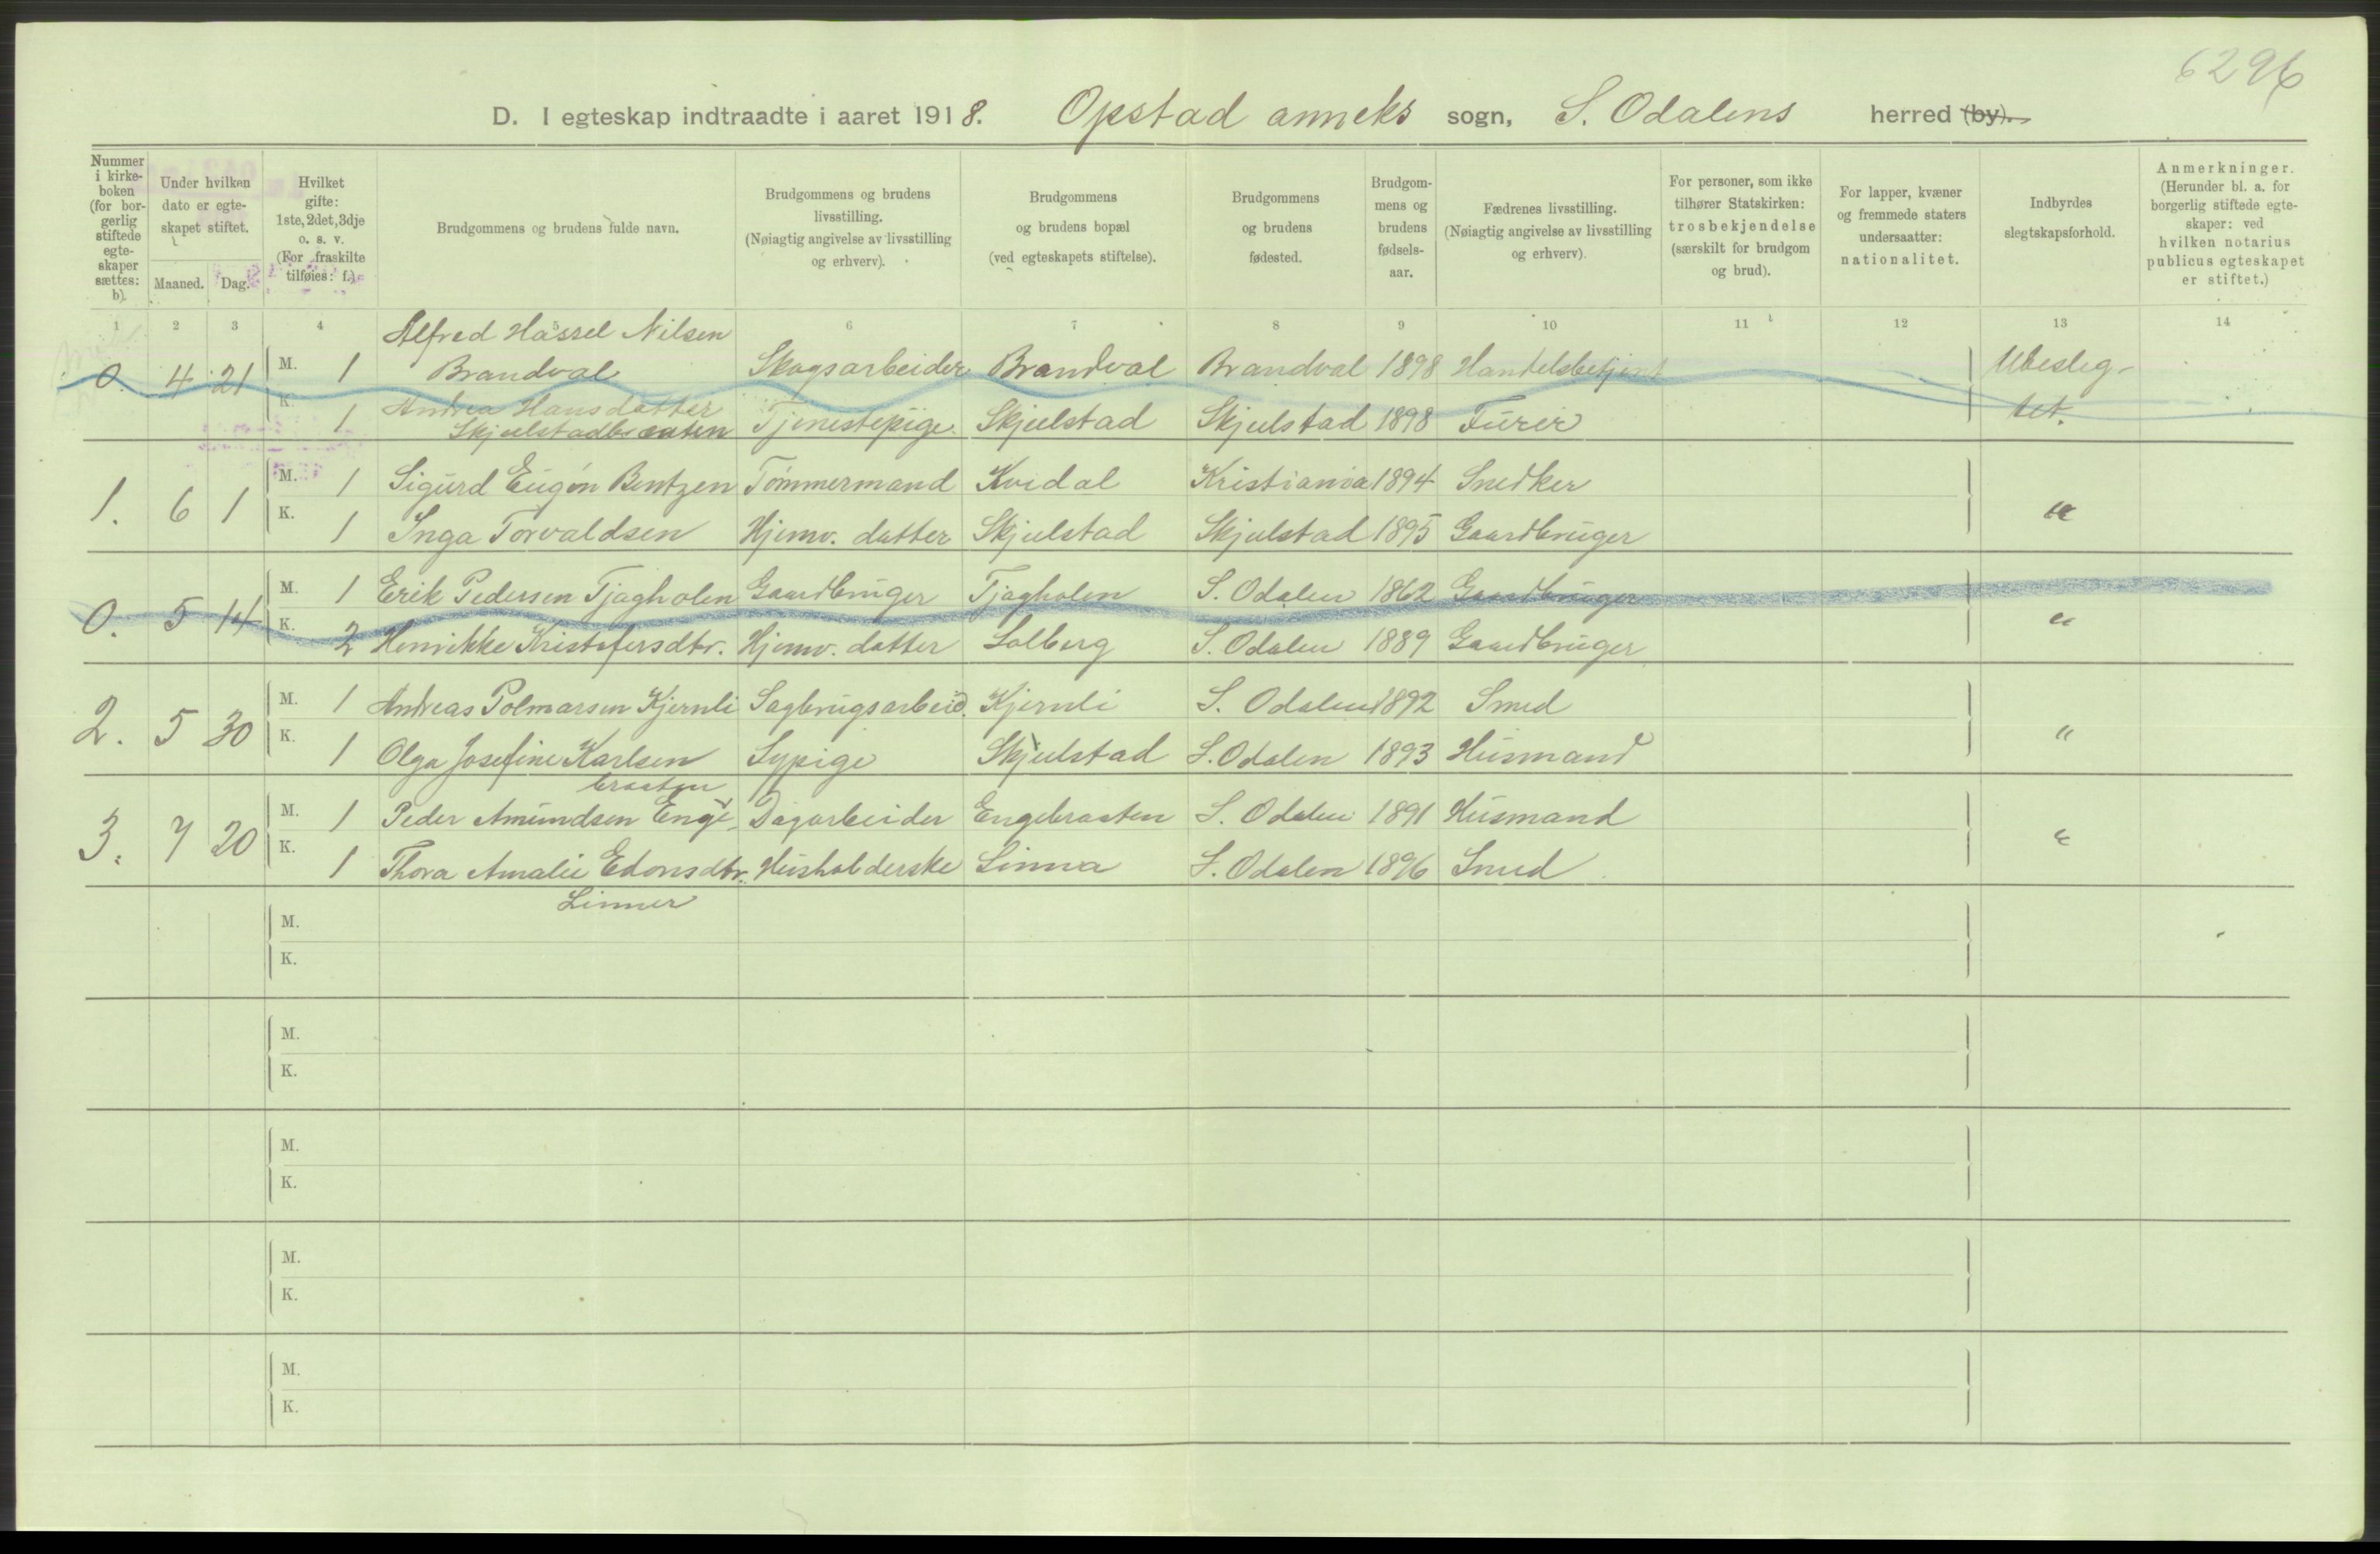 6296
D. I egteskap indtraadte i aaret 1918. Opstad anneks sogn, S. Odalens herred (by).
Nummer i kirke-boken (for bor-gerlig stiftede egte-skaper sættes: b).
Under hvilken dato er egte-skapet stiftet.
Maaned. Dag.
Hvilket gifte: 1ste, 2det, 3dje o. s. v. (For fraskilte tilføies: f.)
Brudgommens og brudens fulde navn.
Brudgommens og brudens livsstilling. (Nøiagtig angivelse av livsstilling og erhverv).
Brudgommens og brudens bopæl (ved egteskapets stiftelse).
Brudgommens og brudens fødested.
Brudgom-mens og brudens fødsels-aar.
Fædrenes livsstilling. (Nøiagtig angivelse av livsstilling og erhverv).
For personer, som ikke tilhører Statskirken: trosbekjendelse (særskilt for brudgom og brud).
For lapper, kvæner og fremmede staters undersaatter: nationalitet.
Indbyrdes slegtskapsforhold.
Anmerkninger. (Herunder bl. a. for borgerlig stiftede egte-skaper: ved hvilken notarius publicus egteskapet er stiftet.)
1 2 3 4 5 6 7 8 9 10 11 12 13 14
Alfred Hassel Nilsen
0. 4 21 M. 1 Brandval Skogsarbeider Brandval Brandval 1898 Handelsbetjent Ubesleg-
K. 1 Andrea Hansdatter Tjenestepige. Skjulstad Skjulstad 1898 Furer tet.
Skjulstadbraaten
1. 6 1 M. 1 Sigurd Eugen Bentzen Tømmermand Kvidal Kristiania 1894 Snedker "
K. 1 Inga Torvaldsen Hjemv. datter Skjulstad Skjulstad 1895 Gaardbruger
0. 5 14 M. 1 Erik Pedersen Tjagholen Gaardbruger Tjagholen S. Odalen 1862 Gaardbruger "
K. 2 Henrikke Kristofersdtr. Hjemv. datter Solberg S. Odalen 1889 Gaardbruger
2. 5 30 M. 1 Andreas Polmarsen Kjernli Sagbrugsarbeid. Kjernli S. Odalen 1892 Smed "
K. 1 Olga Josefine Karlsen Sypige Skjulstad S. Odalen 1893 Husmand
braaten
3. 7 20 M. 1 Peder Amundsen Enge- Dagarbeider Engebraaten S. Odalen 1891 Husmand "
K. 1 Thora Amalie Edonsdtr. Husholderske Linna S. Odalen 1896 Smed
Linner
M.
K.
M.
K.
M.
K.
M.
K.
M.
K.